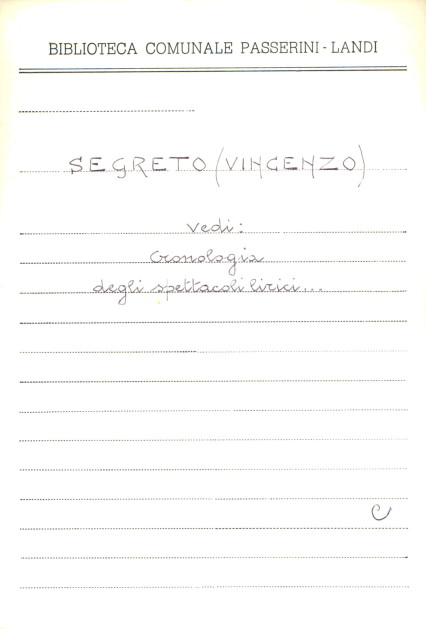 BIBLIOTECA COMUNALE PASSERINI - LANDI
SEGRETO (VINCENZO)
vedi:
Cronologia
degli spettacoli lirici...
C